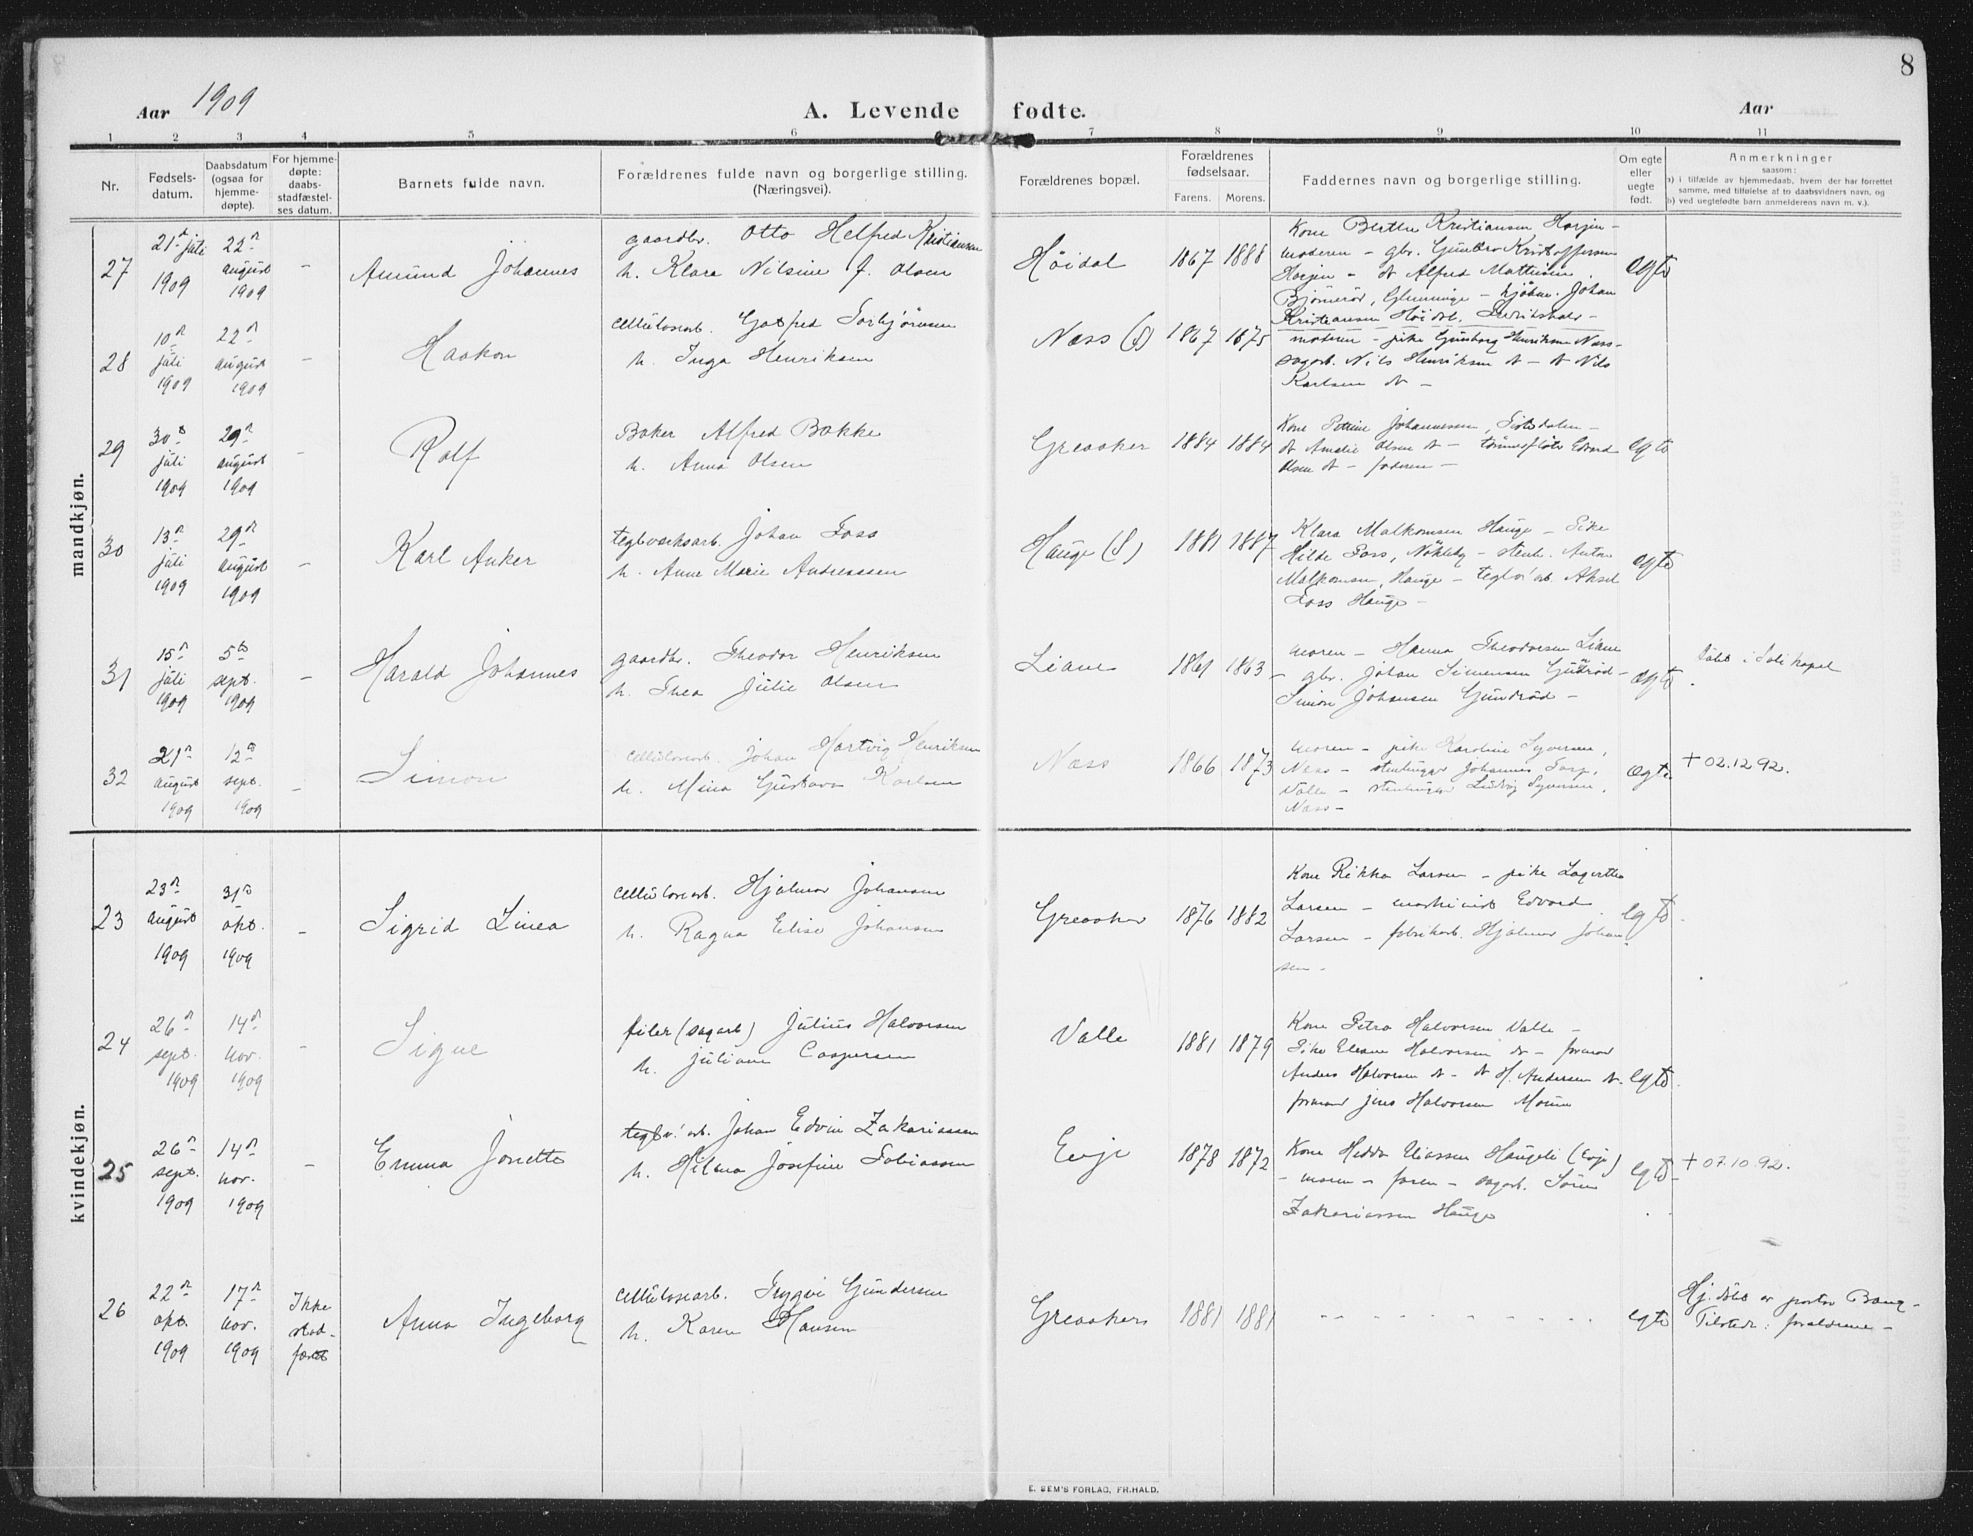 8
Aar 1909 A. Levende fødte. Aar
1 2 3 4 5 6 7 8 9 10 11
Nr.
Fødsels-
datum.
Daabsdatum
(ogsaa for
hjemme-
døpte).
For hjemme-
døpte:
daabs-
stadfæstel-
ses datum.
Barnets fulde navn.
Forældrenes fulde navn og borgerlige stilling.
(Næringsvei).
Forældrenes bopæl.
Forældrenes
fødselsaar.
Farens. Morens.
Faddernes navn og borgerlige stilling.
Om egte
eller
uegte
født.
Anmerkninger
saasom:
a) i tilfælde av hjemmedaab, hvem der har forrettet
samme, med tilføielse af to daabsvidners navn, og
b) ved uegtefødte barn anmelderens navn m. v.).
mandkjøn.
27
21d juli
1909
22n
august
1909
–
Amund Johannes
gaardbr. Otto Helfred Kristiansen
h. Klara Nilsine f. Olsen
Höidal
1867 1888
Kone Berthe Kristiansen
moderen – gbr. Kristoffersen
– Alfred Mattisen
Johan
Kristiansen Höidal.
egte
28
10n
juli
1909
22n
august
1909
–
Haakon
cellulosearb. Gotfred Torbjörnsen
h. Inga Henriksen
Næss (S)
1867 1875
moderen – pike Henriksen Næss –
sagarb. Nils Henriksen – Nils
Karlsen –
29
30te
juli
1909
29n
august
1909
–
Rolf
Baker Alfred Bakke
h. Anna Olsen
Greaaker
1884 1884
Kone Johannessen,
Amalie Olsen – Edvard
Olsen – faderen –
egte
30
13n
juli
1909
29n
august
1909
–
Karl Anker
teglverksarb. Johan Foss
h. Anne Marie Andreassen
Hauge (S)
1881 1887
Klara Malkomsen Hauge – Pike
Hilde Foss, Nökleby – stenh. Anton
Malkomsen, Hauge – teglv. arb. Aksel
Foss Hauge –
egte
31
15n
juli
1909
5te
sept.
1909
–
Harald Johannes
gaardbr. Theodor Henriksen
h. Thea Julie Olsen
Liane
1861 1863
moren – Hanna Theodorsen Liane
– gbr. Johan Simensen Gundröd –
Simon Johansen Gundröd –
egte
Döbt i Soli kapel
32
21n
august
1909
12te
sept.
1909
–
Simon
cellulosearb. Johan Hartvig Henriksen
h. Mina Gustava Karlsen
Næss
1866 1873
moren – pike Karoline Syversen,
Næss – stenhugger Johannes Torp,
Valle – stenhugger Ludvig Syversen,
Næss –
egte
+ 02.12.92.
kvindekjøn.
23
23n
august
1909
31te
okt.
1909
–
Sigrid Linea
cellulosearb. Hjalmar Johansen
h. Ragna Elise Johansen
Greaaker
1876 1882
Kone Rikka Larsen – pike Lagertha
Larsen – maskinist Edvard
Larsen – fabrikarb. Hjalmar Johan-
sen –
egte
24
26n
sept.
1909
14n
nov.
1909
–
Signe
filer (sagarb) Julius Halvorsen
h. Juliane Caspersen
Valle
1881 1879
Kone Petra Halvorsen Valle –
Pike Eleane Halvorsen do – formand
Anders Halvorsen – H. Andersen
formand Jens Halvorsen
egte
25
26n
sept.
1909
14n
nov.
1909
–
Emma Jonette
teglv. arb. Johan Edvin Zakariassen
h. Hilma Josefine Tobiassen
Evje
1878 1872
Kone Hedda Eliassen Haugeli (Evje)
– moren – faren – sagarb. Sören
Zakariassen Hauge
egte
+ 07.10.92.
26
22n
okt.
1909
17n
nov.
1909
Ikke
stad-
fæst
Anna Ingeborg
cellulosearb. Trygve Gundersen
h. Karen Hansen
Greaaker
1881 1881
– – – – – – – – – –
egte
Hj. döbt av pastor Bang –
Tilstede: forældrene –
E. SEM'S FORLAG, FR.HALD.